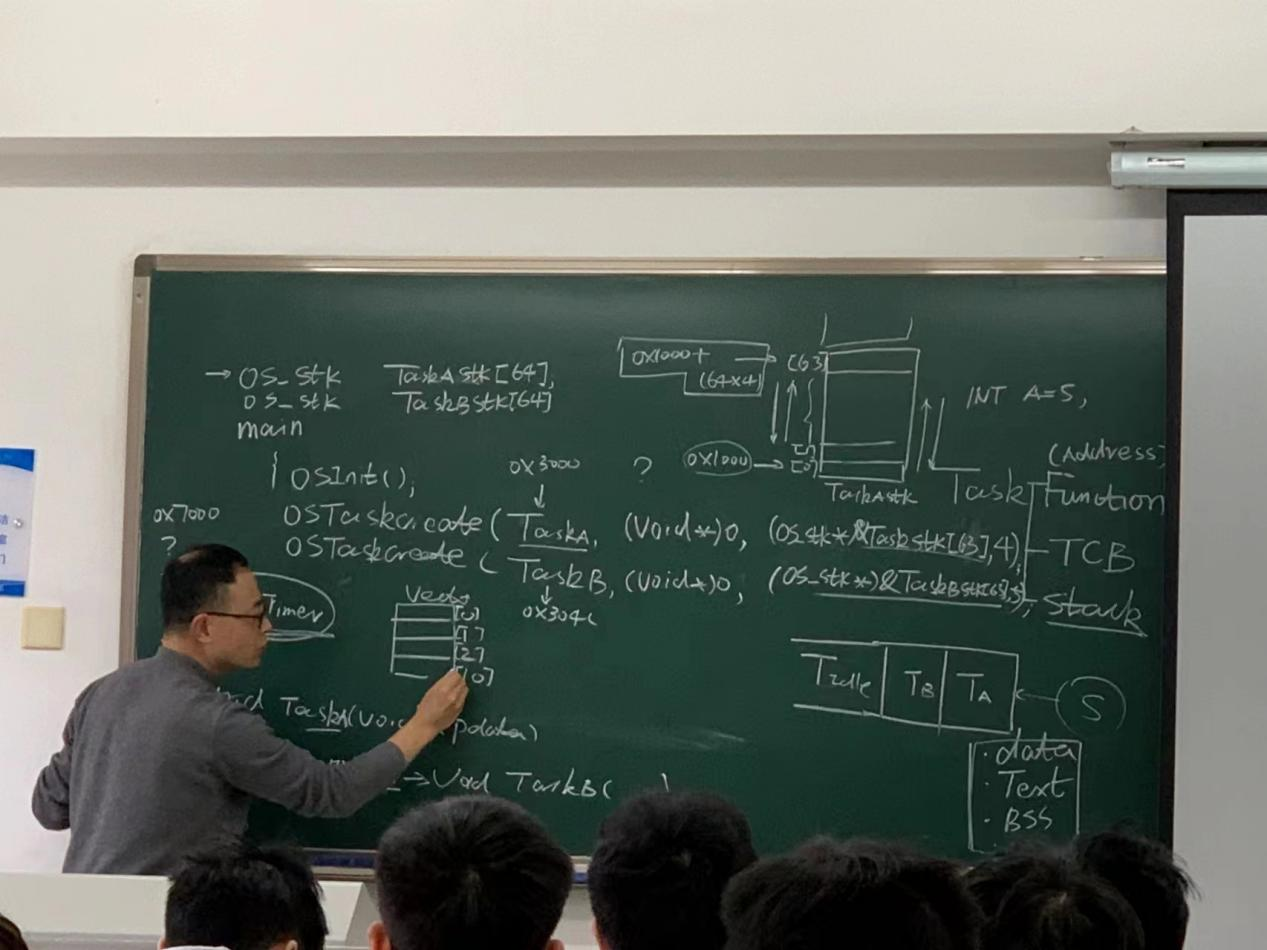 → OS_Stk TaskAStk[64],
OS_Stk TaskBStk[64]
main
{ OSInit(),
0x3000
↓
0x7000
?
OSTaskcreate( TaskA, (Void*)0, (OS_Stk*)&TaskStk[63],4),
OSTaskcreate( TaskB, (Void*)0, (OS_Stk*)&TaskBStk[63],5),
↓
0x304C
Timer
[0]
[1]
[2]
[10]
TaskA(Void pdata)
→ Void TaskB( )
0x1000+
(64x4)
[63]
[1]
[0]
? 0x1000 →
TaskAStk
INT A=5,
(Address)
Task Function
TCB
Stack
TIdle TB TA
S
·data
·Text
·BSS